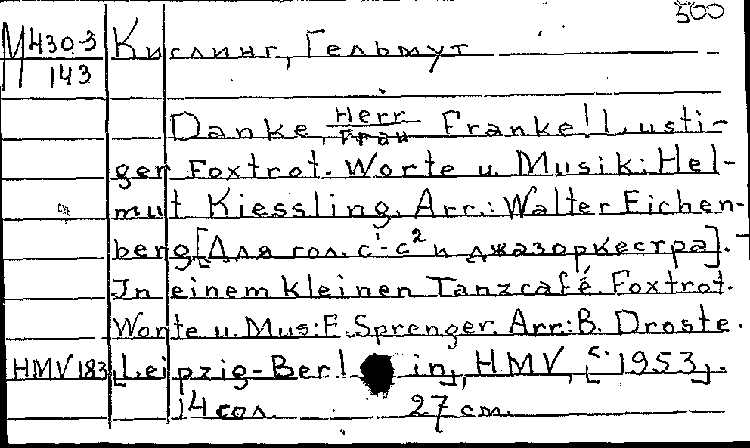 500
М430-3 Кислинг, Гельмут
143
Danke, Herr/Frau Franke! Lusti-
ger Foxtrot. Worte u. Musik: Hel-
mut Kiessling. Arr.: Walter Eichen-
berg [Для гол. c¹-c² и джазоркестра].
In einem kleinen Tanzcafé. Foxtrot.
Worte u. Mus: F. Sprenger. Arr: B. Droste.
HMV 183 [Leipzig-Berlin], HMV, [c. 1953].
14 сол. 27 cm.